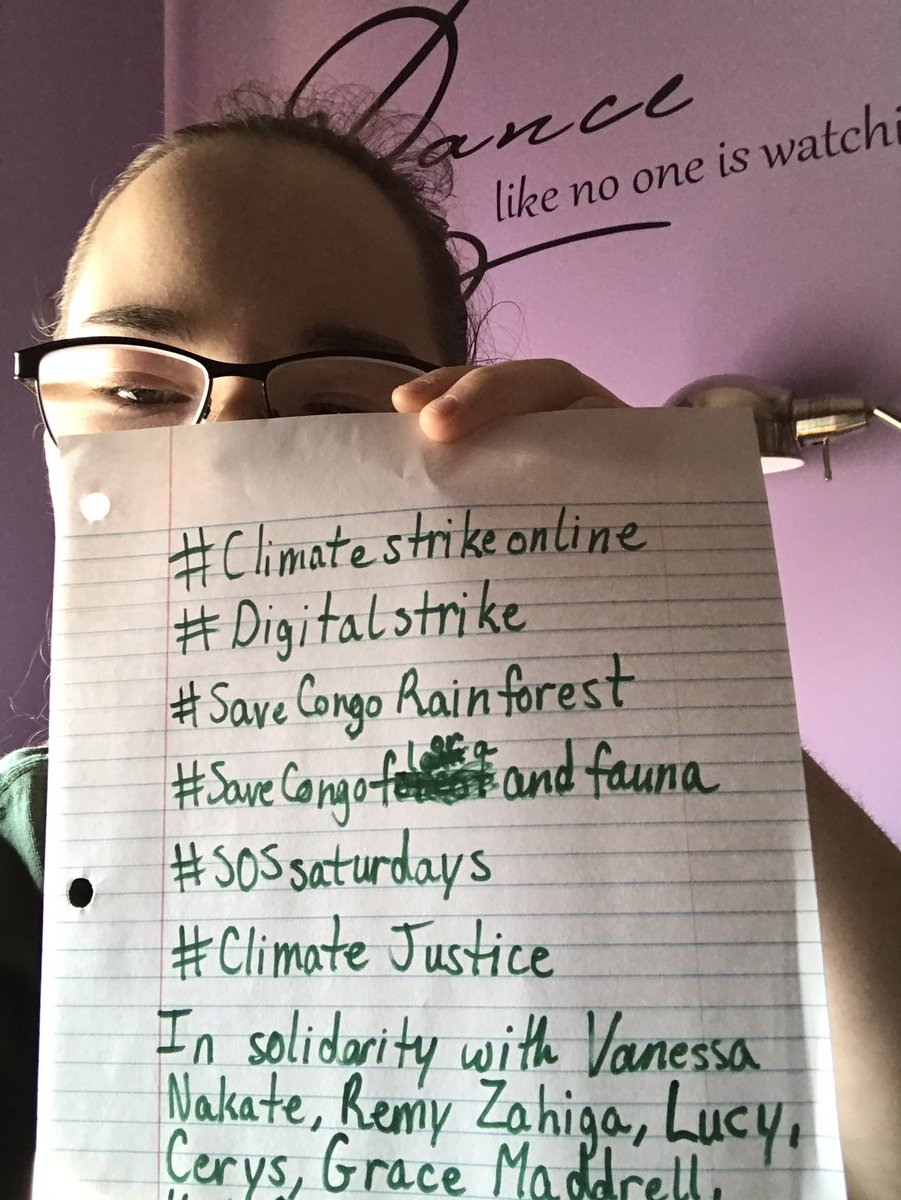 Dance
like no one is watchi
#Climatestrikeonline
#Digitalstrike
#SaveCongoRainforest
#SaveCongoflora and fauna
#SOSsaturdays
#Climate Justice
In solidarity with Vanessa
Nakate, Remy Zahiga, Lucy,
Cerys, Grace Maddrell,